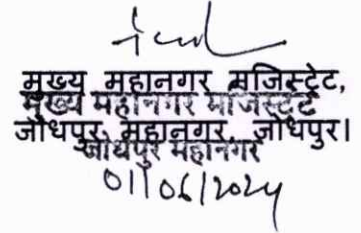 मुख्य महानगर मजिस्ट्रेट,
मुख्य महानगर मजिस्ट्रेट
जोधपुर महानगर, जोधपुर।
जोधपुर महानगर
01/06/2024